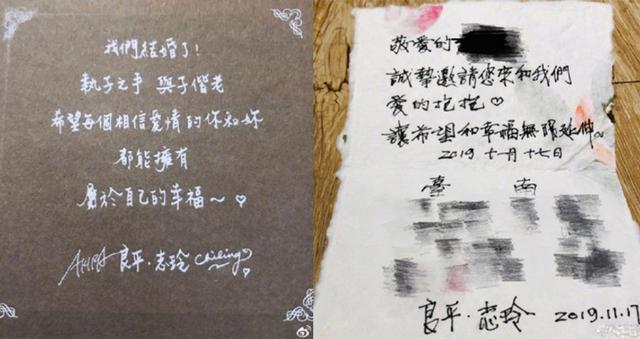 我們結婚了!
執子之手 與子偕老
希望每個相信愛情的你和妳
都能擁有
屬於自己的幸福～♡
AKIRA 良平·志玲 Chiling♡
敬愛的
誠摯邀請您來和我們
愛的抱抱♡
讓希望和幸福無限延伸~
2019 十一月 十七日
臺 南
良平·志玲 2019.11.17